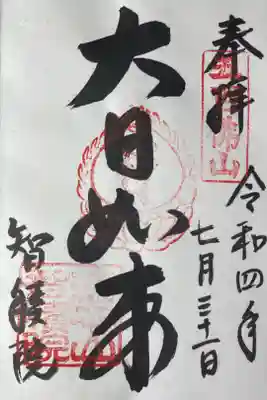 奉拝
令和四年
七月三十一日
大日如来
智積院